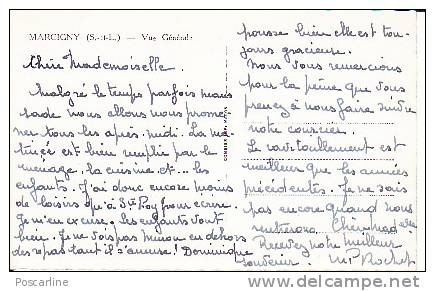 MARCIGNY (S.-et-L.) — Vue Générale
Chère Mademoiselle
Malgré le temps parfois maus
sade nous allons nous prome
ner tous les après-midi. La ma
tinée est bien remplie par le
menage, la cuisine et... les
enfants. J'ai donc encore moins
de loisirs qu'à St Roy pour écrire.
Je m'en excuse. Les enfants vont
bien. Je ne vois pas Minou en dehors
des repas tant il s'amuse! Dominique
pousse bien elle est tou-
jours gracieuse.
Nous vous remercions
pour la peine que vous
prenez à nous faire suivre
notre courrier.
Le ravitaillement est
meilleur que les années
précédentes. Je ne sais
pas encore quand nous
rentrerons. Chère Mad elle
Recevez notre meilleur
souvenir. M P Rochet
Poscarline
delcampe.net